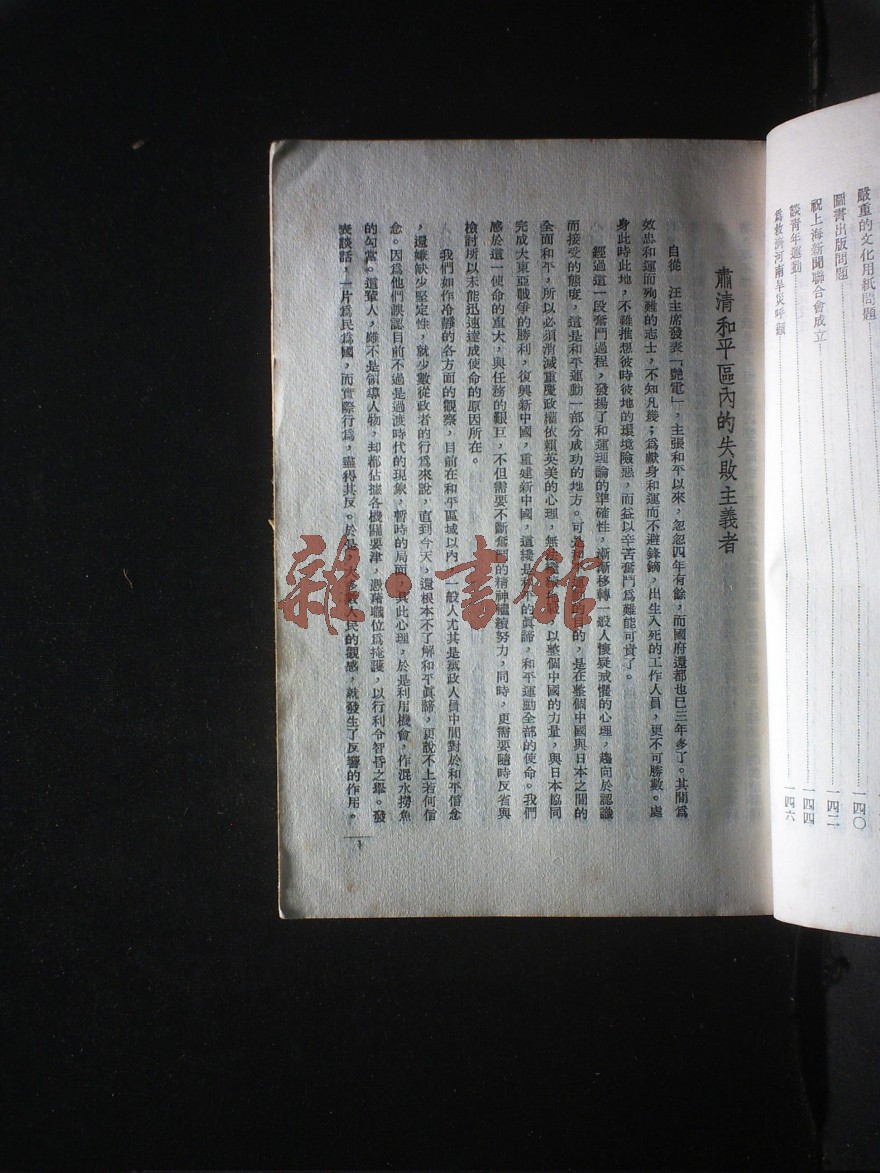 嚴重的文化用紙問題
圖書出版問題 一四〇
祝上海新聞聯合會成立 一四二
談青年運動 一四四
爲救濟河南旱災呼籲 一四六
肅清和平區內的失敗主義者
自從　汪主席發表「艷電」，主張和平以來，忽忽四年有餘，而國府還都也已三年多了。其間爲
效忠和運而殉難的志士，不知凡幾；爲獻身和運而不避鋒鏑，出生入死的工作人員，更不可勝數。處
身此時此地，不難推想彼時彼地的環境險惡，而益以辛苦奮鬥爲難能可貴了。
經過這一段奮鬥過程，發揚了和運理論的準確性，漸漸移轉一般人懷疑戒懼的心理，趨向於認識
而接受的態度，這是和平運動一部分成功的地方。可是和平運動的目的，是在整個中國與日本之間的
全面和平，所以必須消滅重慶政權依賴英美的心理，無法繼續抗戰，以整個中國的力量，與日本協同
完成大東亞戰爭的勝利，復興新中國，重建新中國，這纔是和平的眞諦，和平運動全部的使命。我們
感於這一使命的重大，與任務的艱巨，不但需要不斷奮鬥的精神繼續努力，同時，更需要隨時反省與
檢討所以未能迅速達成使命的原因所在。
我們如作冷靜的各方面的觀察，目前在和平區域以內，一般人尤其是黨政人員中間對於和平信念
，還嫌缺少堅定性，就少數從政者的行爲來說，直到今天，還根本不了解和平眞諦，更說不上若何信
念。因爲他們誤認目前不過是過渡時代的現象，暫時的局面，具此心理，於是利用機會，作混水撈魚
的勾當。這輩人，雖不是領導人物，却都佔據各機關要津，憑藉職位爲掩護，以行利令智昏之舉。發
表談話，一片爲民爲國，而實際行爲，盡得其反。於是大多數人民的觀感，就發生了反響的作用。
一
雜·書館